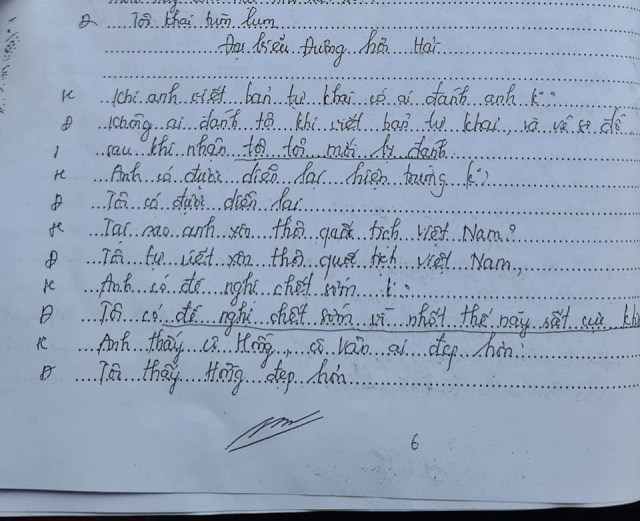 Đ Tôi khai lum lum
Đại biểu Dương hồi Hải
H Khi anh viết bản tự khai có ai đánh anh k?
Đ Không ai đánh tô khi viết bản tự khai, và vẽ sơ đồ
sau khi nhận tội tôi mới bị đánh
H Anh có được diễn lại hiện trường k?
Đ Tôi có được diễn lại
H Tại sao anh xin thôi quốc tịch việt Nam?
Đ Tôi tự viết xin thôi quốc tịch việt Nam,
H Anh có đề nghị chết sớm k?
Đ Tôi có đề nghị chết sớm vì nhốt thế này
H Anh thấy cô Hồng, cô Vân ai đẹp hơn?
Đ Tôi thấy Hồng đẹp hơn
6